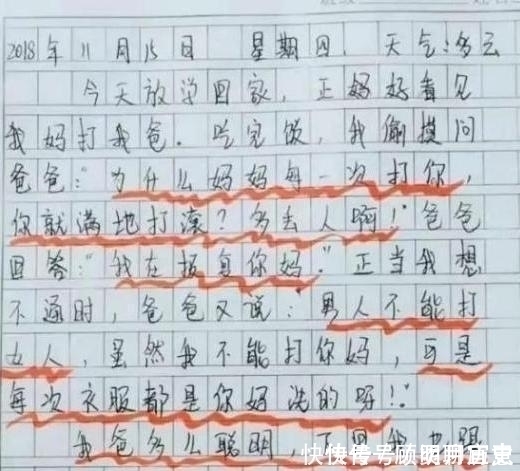 2018年11月15日 星期四. 天气:多云
今天放学回家,正妈好看见
我妈打我爸.吃完饭,我偷摸问
爸爸:"为什么妈妈每一次打你,
你就满地打滚?多丢人啊!"爸爸
回答:"我在报复你妈."正当我想
不通时,爸爸又说:"男人不能打
女人,虽然我不能打你妈,可是
每次衣服都是你妈洗的呀!"
我爸多么聪明,下回我也
快传号